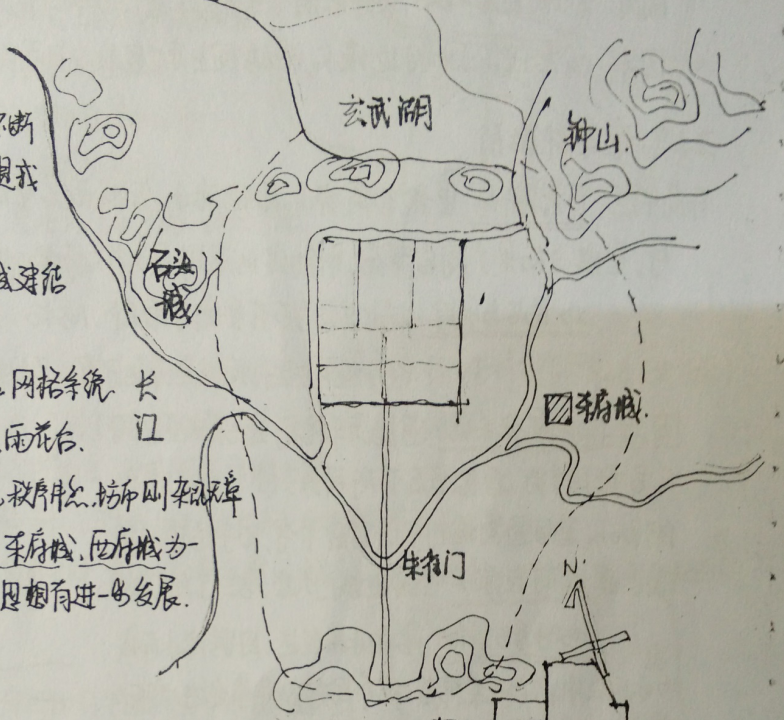 玄武湖
钟山.
石头
城.
网格系统
长
江
雨花台.
东府城.
秩序井然,坊市则杂乱无章
东府城、西府城为一
朱雀门
思想有进一步发展.
N